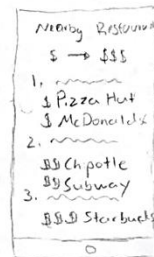 Nearby Restaurants
$ → $$$
1.
$ Pizza Hut
$ McDonald's
2.
$$ Chipotle
$$ Subway
3.
$$$ Starbucks